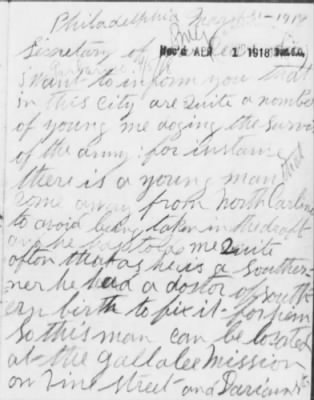 Philadelphia 1918
Secretary of
Rec'd APR 1 1918
I want to inform you that
in this city are quite a number
of young me doging the survis
of the army: for instance
there is a young man that
come away from North Carlina
to avoid being taken in the draft
and he has told me quite
often that as he is a Southern-
ner he had a doctor of South-
ern birth to fix it for him
So this man can be located
at the gallalee mission
on Vine street and